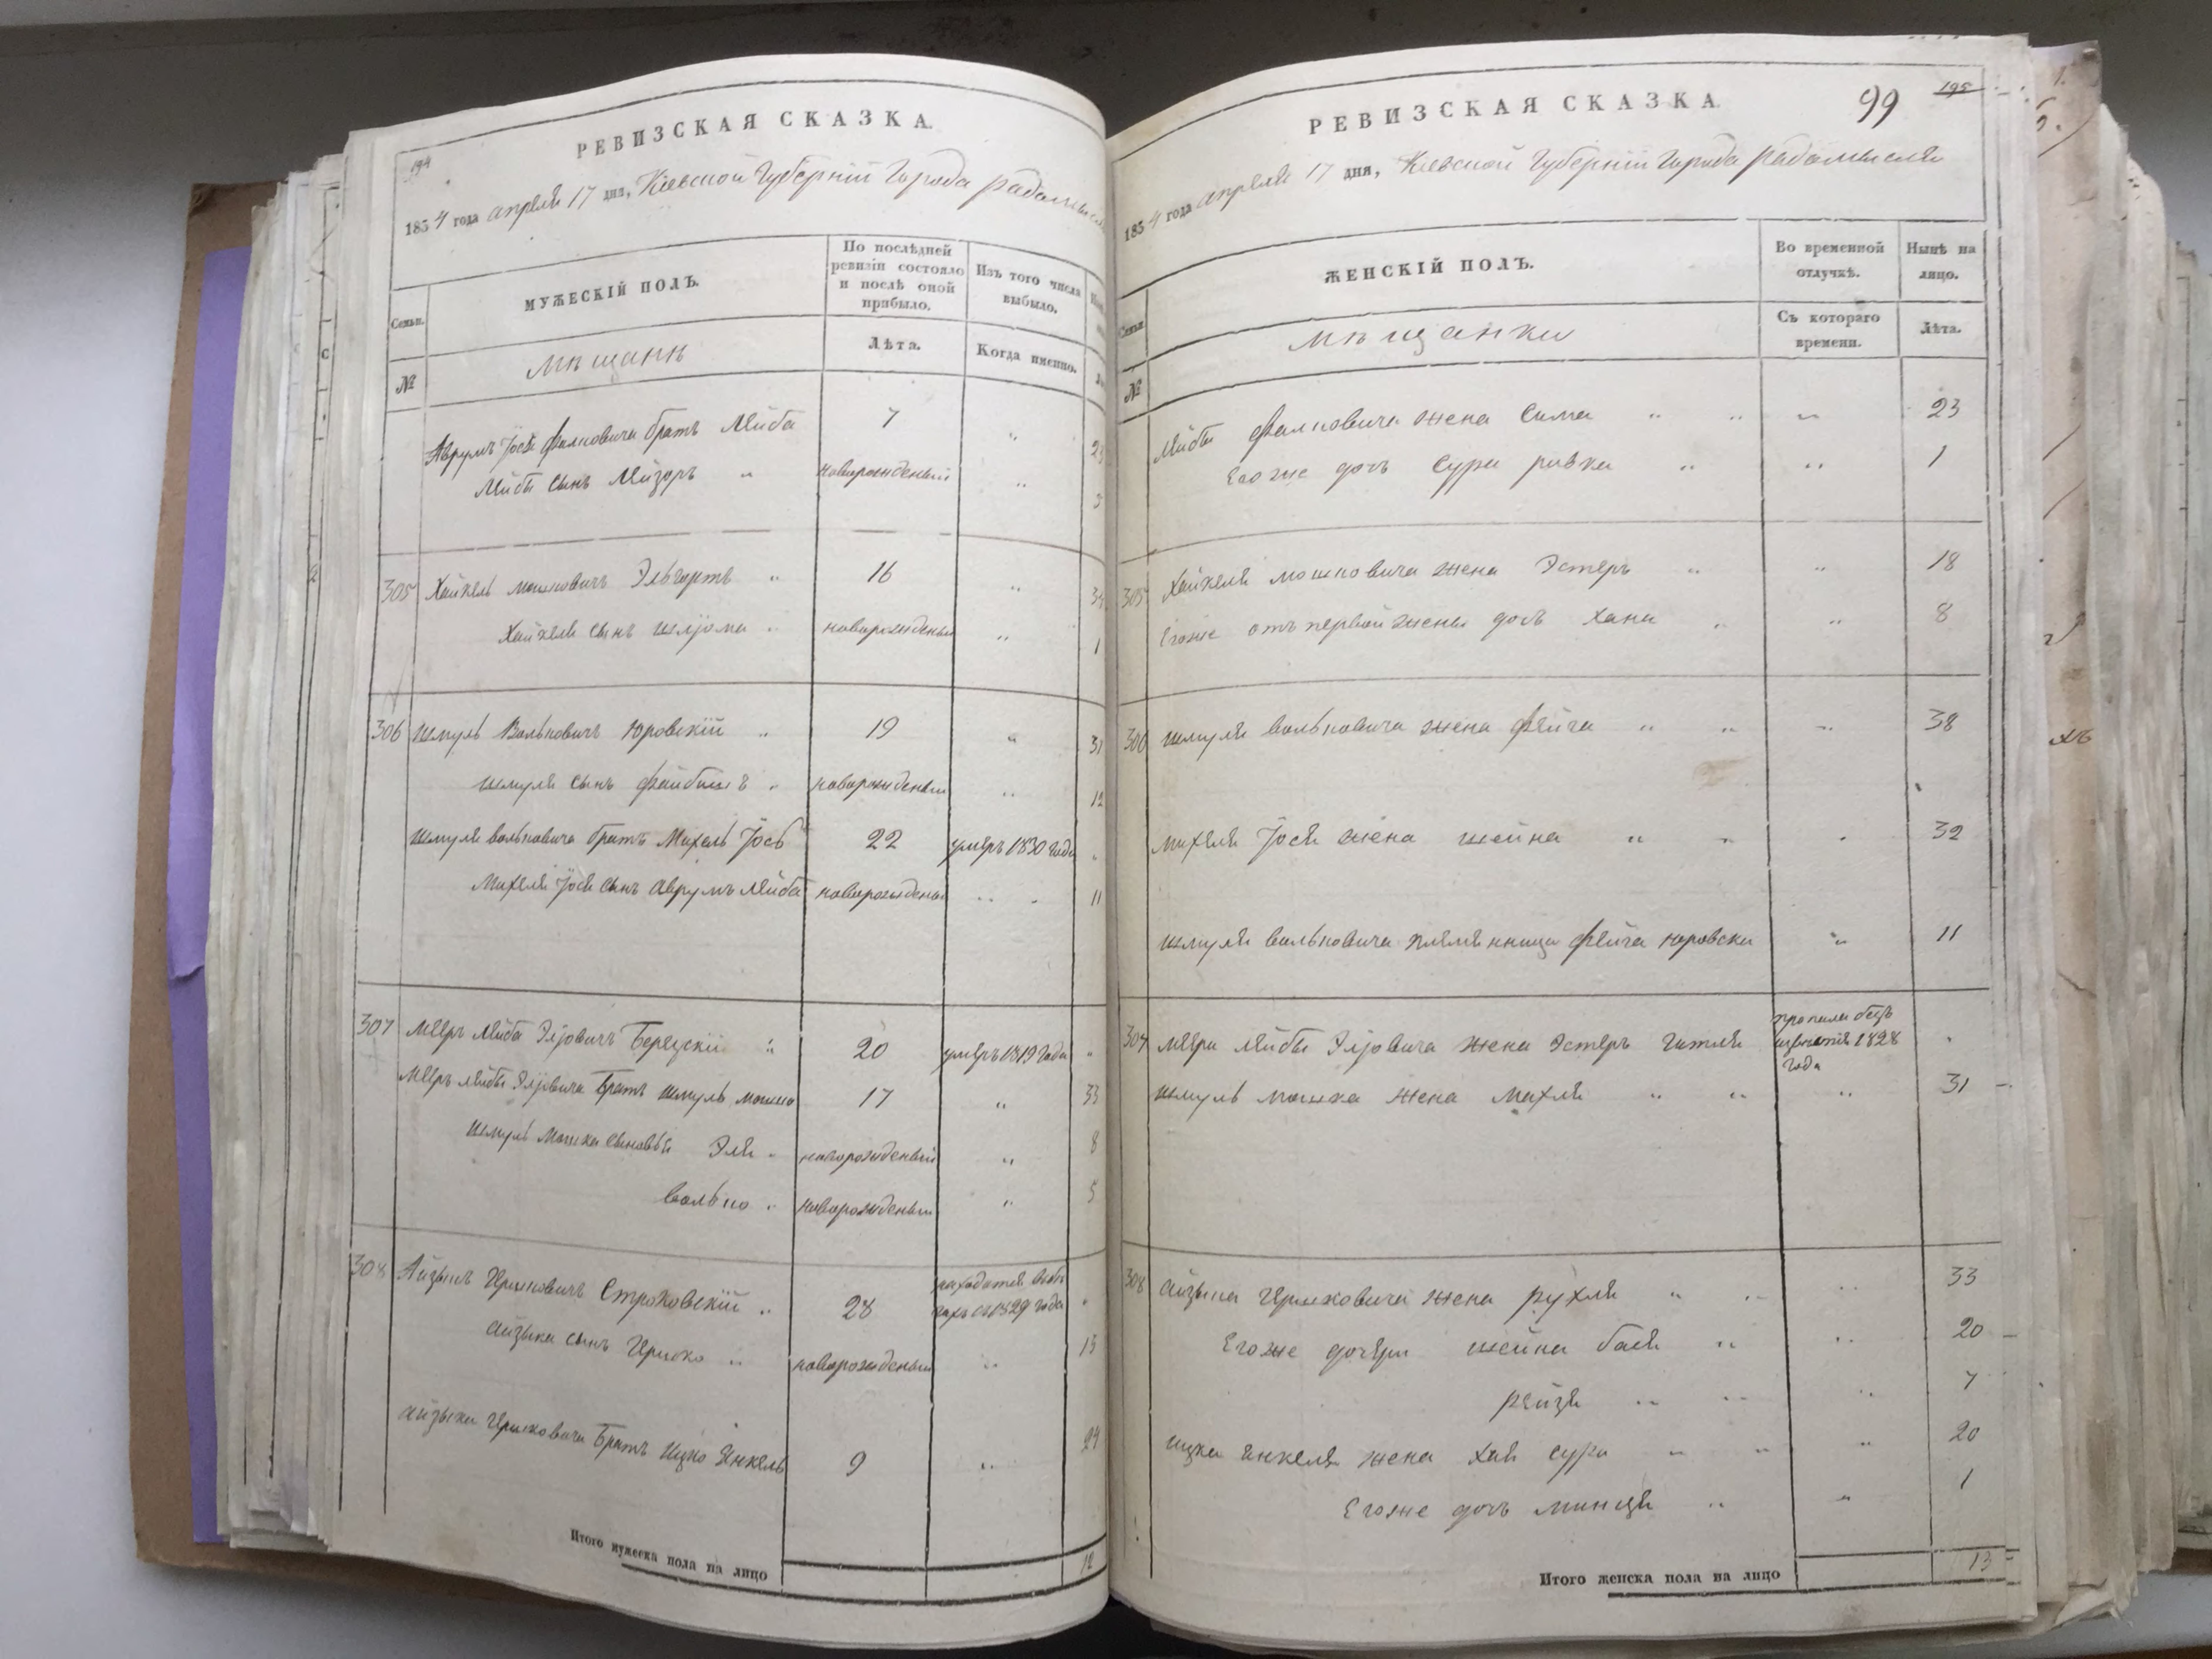 194
РЕВИЗСКАЯ СКАЗКА.
1834 года апреля 17 дня, Кіевской Губерніи Города Радомысля
МУЖЕСКІЙ ПОЛЪ.
По послѣдней ревизіи состояло и послѣ оной прибыло.
Изъ того числа выбыло.
Семьи.
№
мѣщанѣ
Лѣта.
Когда именно.
Аврумъ Іося Фалковича братъ Лейба 7 „
Лейбы сынъ Лейзоръ „ новорожденый „
305 Хайкель мошковичъ „ 16 „
Хайкеля сынъ шліома „ новорожденый „ 1
306 шмуль Вольковичъ Юровскій „ 19 „ 31
шмуля сынъ Файбишъ „ новорожденый „ 12
шмуля вольковича братъ Михель Іось 22 умеръ 1830 года „
Михеля Іося сынъ Аврумъ Лейба новорожденый „ 11
307 Мееръ Лейба Эліовичъ „ 20 умеръ 1819 года „
Мееръ лейбы Эліовича Братъ шмуль мошко 17 „ 33
шмуль Мошка сыновья Эля „ новорожденый „ 8
Волько „ новорожденый „ 5
308 Айзыкъ Гершковичъ Строковскій „ 28 находится въ бѣгахъ съ 1829 года „
айзыка сынъ Гершко „ новорожденый „ 13
айзыка Гершковича Братъ Ицко Янкель 9 „ 24
Итого мужеска пола на лицо 12
99
195
РЕВИЗСКАЯ СКАЗКА.
1834 года апреля 17 дня, Кіевской Губерніи Города Радомысля
ЖЕНСКІЙ ПОЛЪ.
Во временной отлучкѣ.
Нынѣ на лицо.
Семьи.
№
мѣщанки
Съ котораго времени.
Лѣта.
Лейбы Фалковича жена Сима „ „ „ 23
Его же дочь Сура ривка „ „ 1
305 Хайкеля мошковича жена Эстеръ „ „ 18
Его же отъ первой жены дочь Хана „ „ 8
306 шмуля вольковича жена Фейга „ „ „ 38
михеля Іося жена шейна „ „ „ 32
шмуля вольковича племянница Фейга юровска „ 11
307 меера лейбы Эліовича жена Эстеръ Гитля пропала безъ извѣстія 1828 года „
шмуль мошка жена Михля „ „ „ 31
308 айзыка Гершковича жена рухля „ „ „ 33
Его же дочери шейна бася „ „ 20
рейзя „ „ „ 7
ицка янкеля жена хая сура „ „ „ 20
Его же дочь минця „ „ 1
Итого женска пола на лицо 13